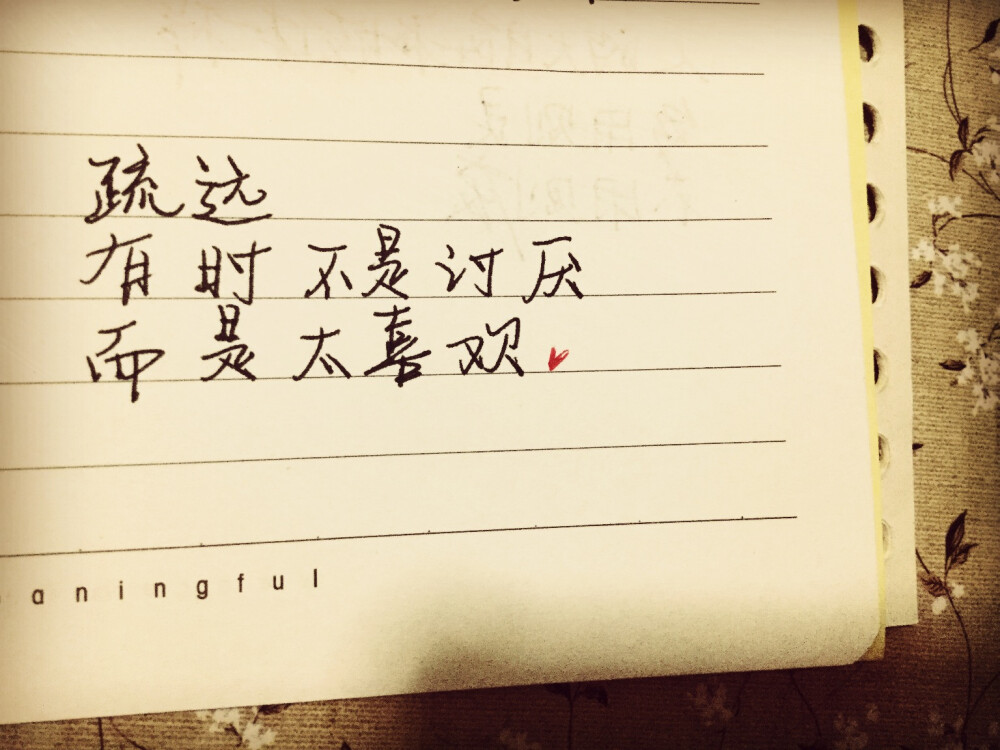 疏远
有时不是讨厌
而是太喜欢
aningful